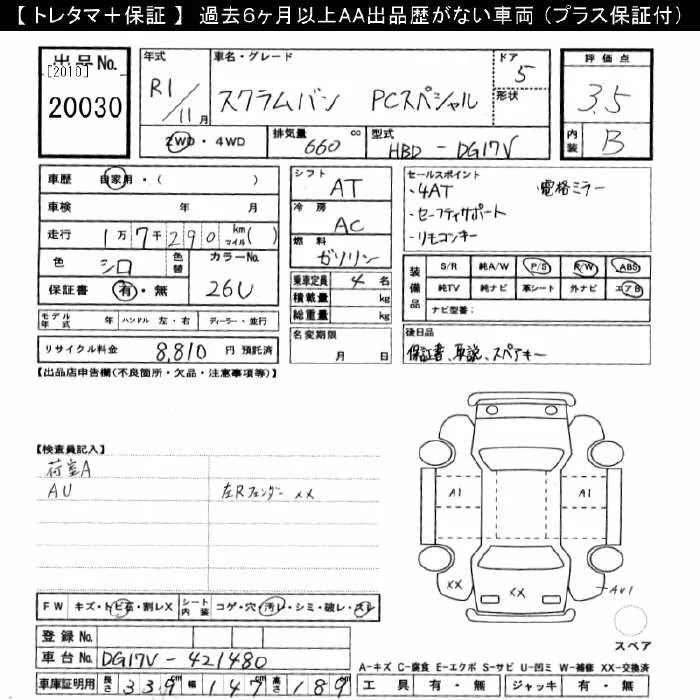 【 トレタマ＋保証 】 過去6ヶ月以上AA出品歴がない車両（プラス保証付）
出品No.
[2010]
20030
年式
R1/11月
車名・グレード
スクラムバン PCスペシャル
ドア
5
形状
2WD・4WD
排気量
660 cc
型式
HBD-DG17V
評価点
3.5
内装
B
車歴 自家用・( )
車検 年 月
走行 1万7千290 km マイル( )
色 シロ 色替
カラーNo.
26U
保証書 有・無
モデル年式 年 ハンドル 左・右 ディーラー・並行
リサイクル料金 8,810 円 預託済
シフト
AT
冷房
AC
燃料
ガソリン
乗車定員 4 名
積載量 kg
総重量 kg
名変期限
月 日
セールスポイント
・4AT ・電格ミラー
・セーフティサポート
・リモコンキー
装備品
S/R 純A/W P/S R/W ABS
純TV 純ナビ 革シート 外ナビ エアB
ナビ型番：
後日品
保証書、取説、スペアキー
【出品店申告欄(不良箇所・欠品・注意事項等)】
【検査員記入】
荷室A
AU
左Rフェンダー XX
A1 A1
XX XX AU1
スペア
FW キズ・トビ石・割レX シート内装 コゲ・穴・汚レ・シミ・破レ・スレ
登録No.
車台No. DG17V-421480
車庫証明用 長さ 339cm 幅 147cm 高さ 189cm
A-キズ C-腐食 E-エクボ S-サビ U-凹ミ W-補修 XX-交換済
工具 有・無 ジャッキ 有・無